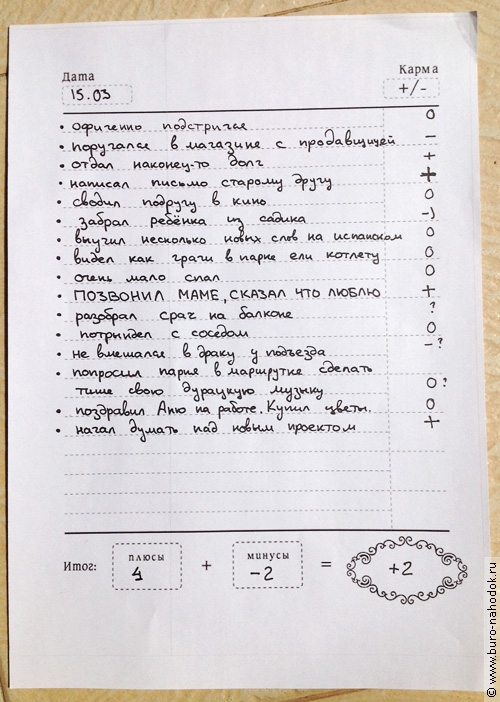 Дата
Карма
15.03
+/-
• офигенно подстригся 0
• поругался в магазине с продавщицей –
• отдал наконец-то долг +
• написал письмо старому другу +
• сводил подругу в кино 0
• забрал ребёнка из садика -)
• выучил несколько новых слов на испанском 0
• видел как грачи в парке ели котлету 0
• очень мало спал 0
• ПОЗВОНИЛ МАМЕ, СКАЗАЛ ЧТО ЛЮБЛЮ +
• разобрал срач на балконе ?
• потрындел с соседом 0
• не вмешался в драку у подъезда – ?
• попросил парня в маршрутке сделать
тише свою дурацкую музыку 0 ?
• поздравил Аню на работе. Купил цветы. 0
• начал думать над новым проектом +
Итог: плюсы 4 + минусы -2 = +2
© www.buro-nahodok.ru